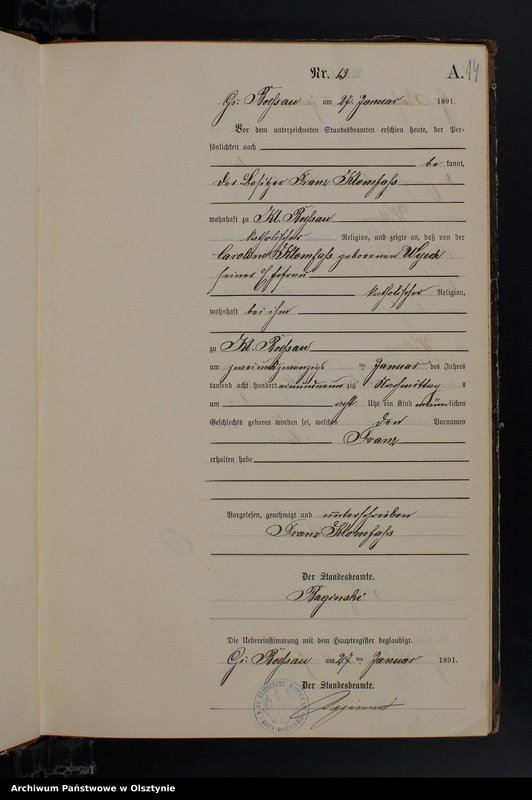 Nr. 13 A. 14
Gr. Bößau am 27. Januar 1891.
Vor dem unterzeichneten Standesbeamten erschien heute, der Per-
sönlichkeit nach
be kannt,
der Besitzer Franz Klomfaß
wohnhaft zu Kl. Bößau
katholischer Religion, und zeigte an, daß von der
Caroline Klomfaß geborenen
seiner Ehefrau
katholischer Religion,
wohnhaft bei ihm
zu Kl. Bößau
am zweiundzwanzigsten Januar des Jahres
tausend acht hundert einundneunzig Nachmittags
um acht Uhr ein Kind männlichen
Geschlechts geboren worden sei, welches den Vornamen
Franz
erhalten habe
Vorgelesen, genehmigt und unterschrieben
Franz Klomfaß
Der Standesbeamte.
Baginski
Die Uebereinstimmung mit dem Hauptregister beglaubigt.
Gr. Bößau am 27 ten Januar 1891.
Der Standesbeamte.
Baginski
Archiwum Państwowe w Olsztynie